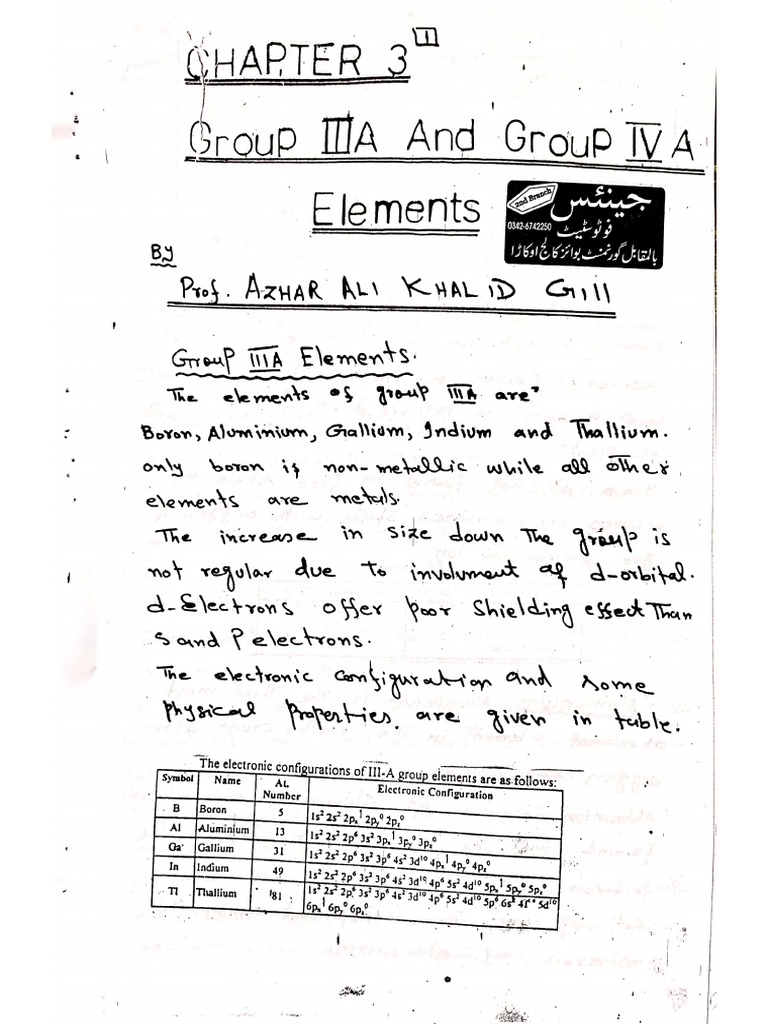 1
CHAPTER 3
Group IIIA And Group IV A
Elements
2nd Branch
جینئس
0342-6742250
فوٹوسٹیٹ
بالمقابل گورنمنٹ بوائز کالج اوکاڑا
By
Prof. AZHAR ALI KHALID Gill
Group IIIA Elements.
The elements of group IIIA are"
Boron, Aluminium, Gallium, Indium and Thallium.
only boron is non-metallic while all other
elements are metals.
The increase in size down The group is
not regular due to involvment of d-orbital.
d-Electrons offer poor shielding effect Than
s and P electrons.
The electronic configuration and some
physical properties. are given in table.
The electronic configurations of III-A group elements are as follows:
Symbol Name At. Number Electronic Configuration
B Boron 5 1s² 2s² 2pₓ¹ 2pᵧ⁰ 2p_z⁰
Al Aluminium 13 1s² 2s² 2p⁶ 3s² 3pₓ¹ 3pᵧ⁰ 3p_z⁰
Ga Gallium 31 1s² 2s² 2p⁶ 3s² 3p⁶ 4s² 3d¹⁰ 4pₓ¹ 4pᵧ⁰ 4p_z⁰
In Indium 49 1s² 2s² 2p⁶ 3s² 3p⁶ 4s² 3d¹⁰ 4p⁶ 5s² 4d¹⁰ 5pₓ¹ 5pᵧ⁰ 5p_z⁰
Tl Thallium 81 1s² 2s² 2p⁶ 3s² 3p⁶ 4s² 3d¹⁰ 4p⁶ 5s² 4d¹⁰ 5p⁶ 6s² 4f¹⁴ 5d¹⁰
6pₓ¹ 6pᵧ⁰ 6p_z⁰